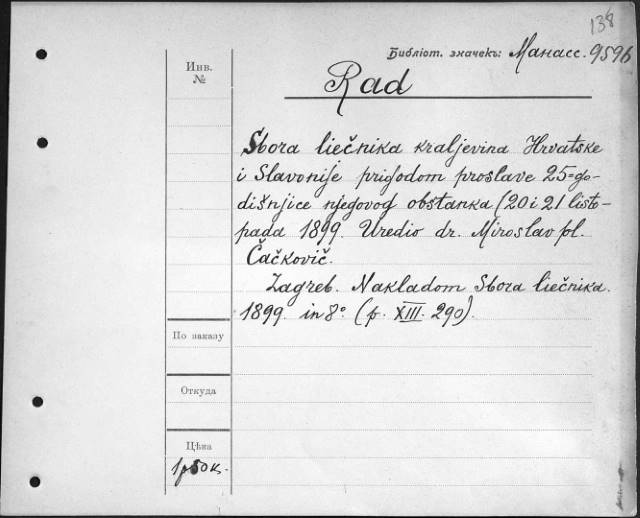 138
Библіот. значекъ: Манасс. 9596
Инв.
№
Rad
Sbora liečnika kraljevina Hrvatske
i Slavonije prigodom proslave 25=go-
dišnjice njegovog obstanka (20 i 21 listo-
pada 1899. Uredio dr. Miroslav pl.
Čačkovič.
Zagreb. Nakladom Sbora liečnika.
1899. in 8° (p. XIII. 290).
По заказу
Откуда
Цѣна
1р50к.